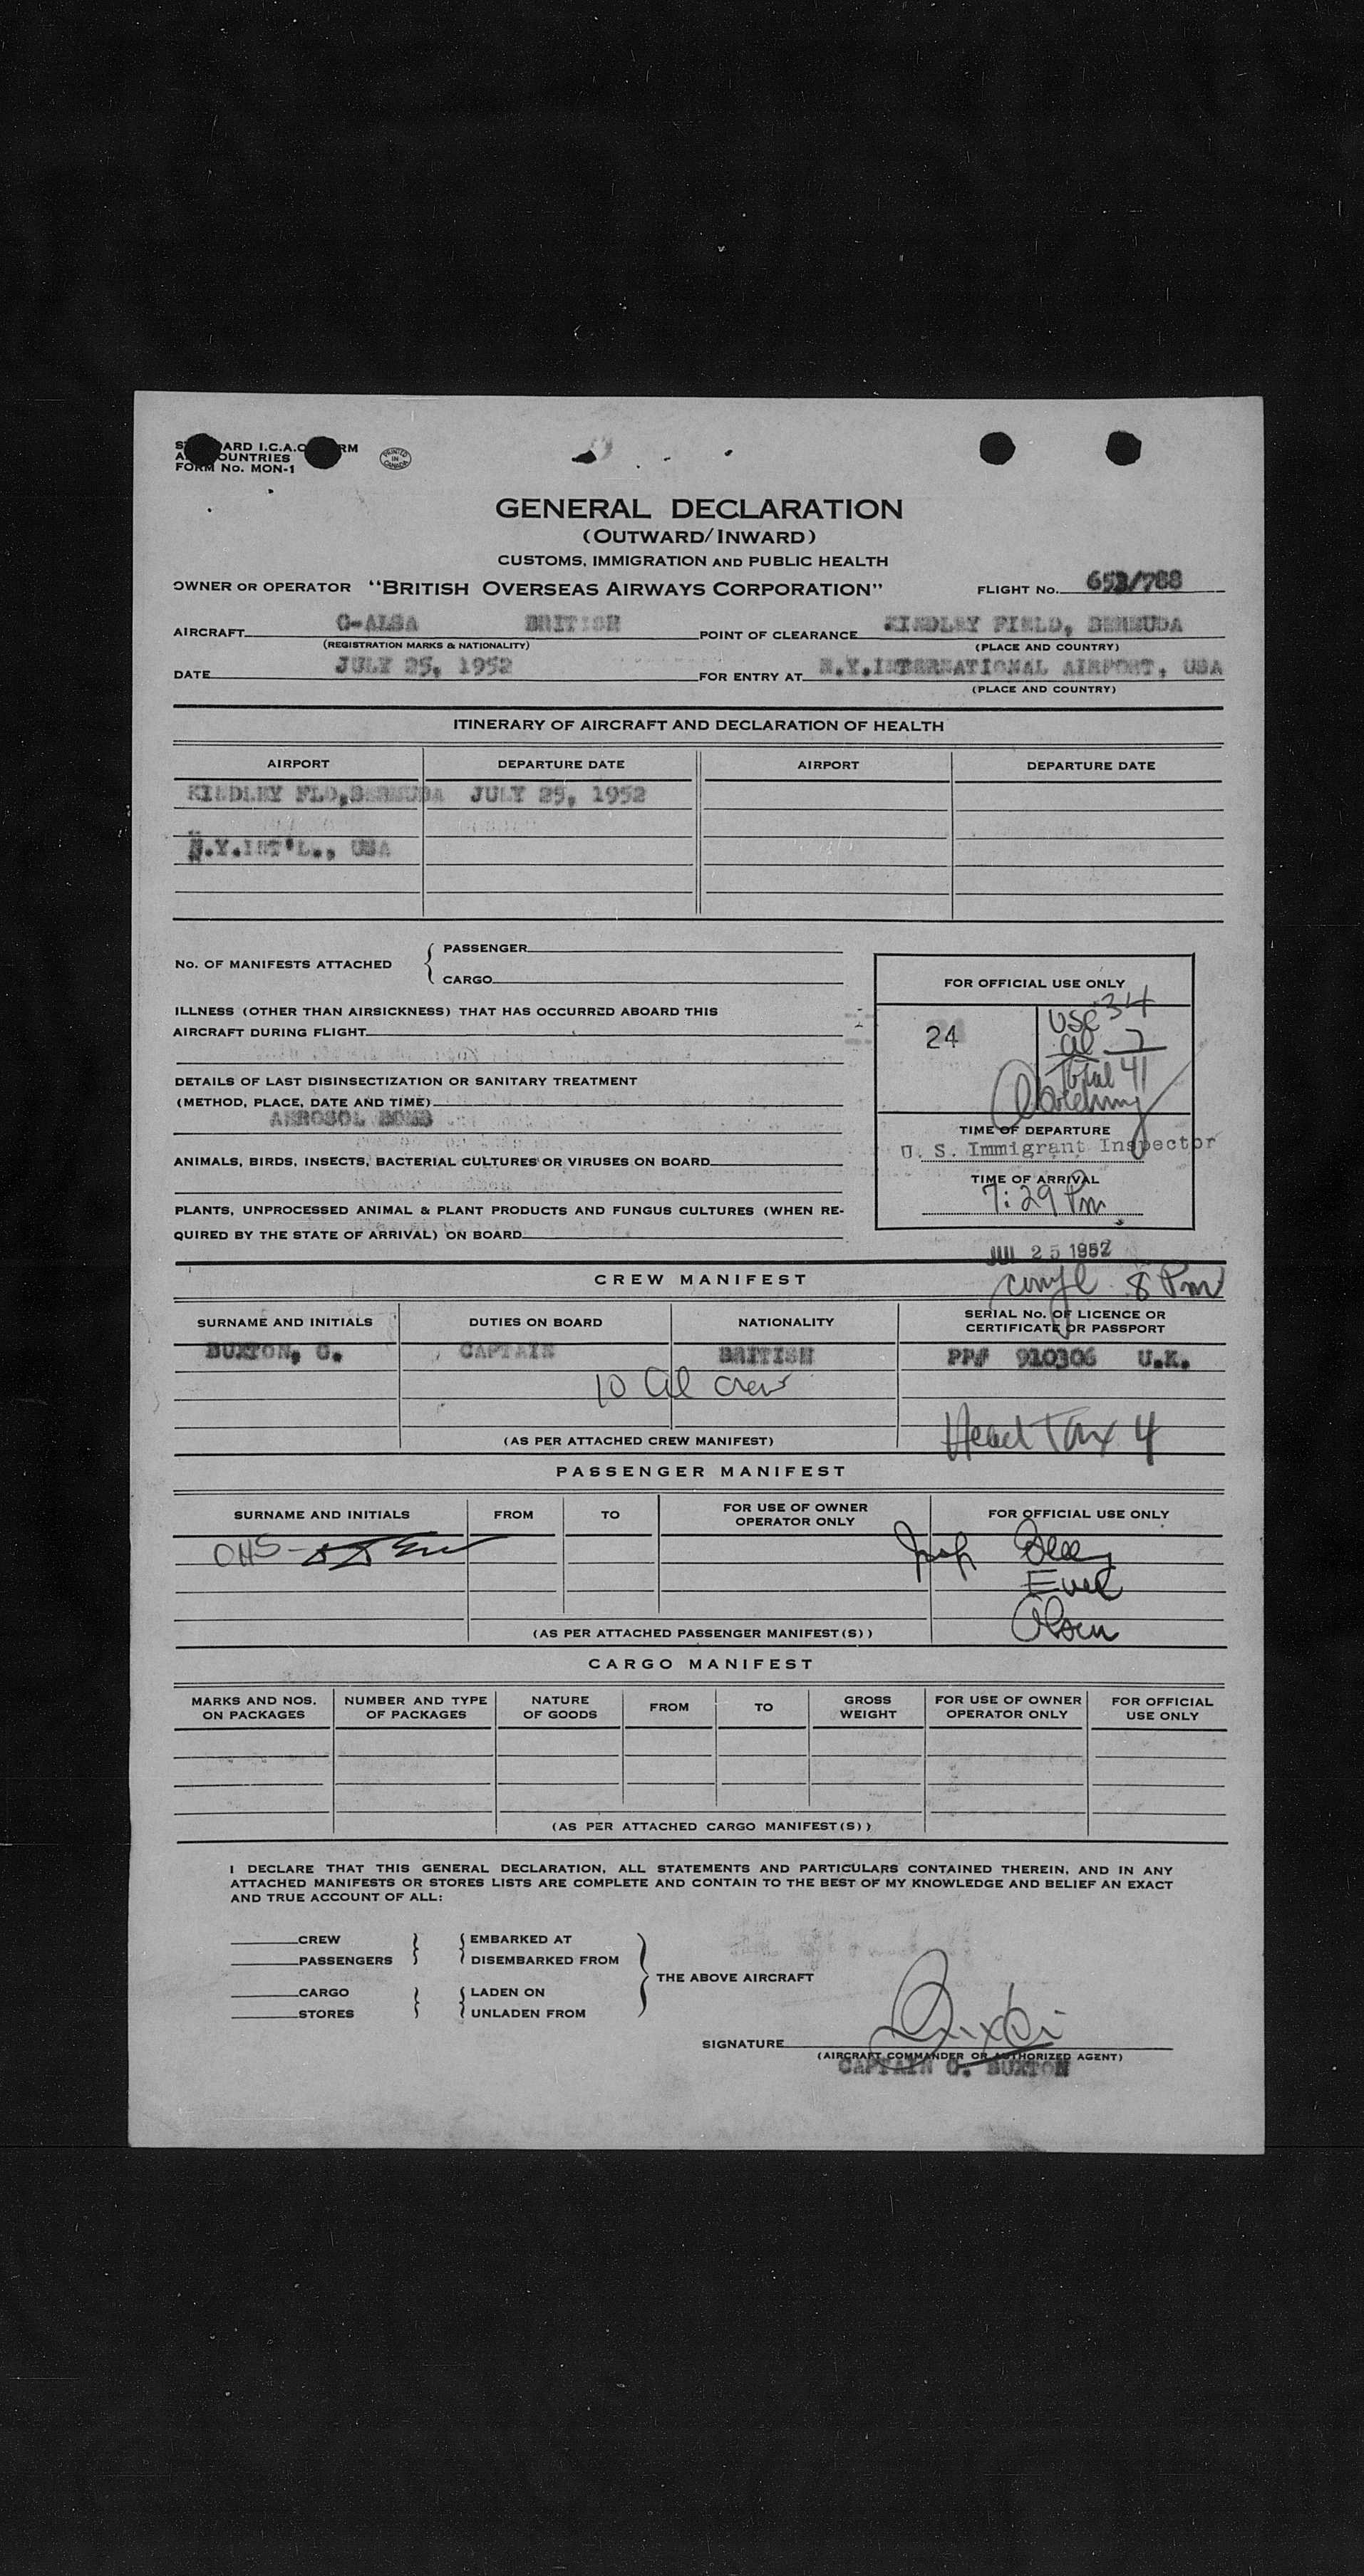 STANDARD I.C.A.O. FORM
ALL COUNTRIES
FORM No. MON-1
PRINTED IN CANADA
GENERAL DECLARATION
(OUTWARD/INWARD)
CUSTOMS, IMMIGRATION AND PUBLIC HEALTH
OWNER OR OPERATOR "BRITISH OVERSEAS AIRWAYS CORPORATION" FLIGHT No. 653/788
AIRCRAFT G-ALSA BRITISH POINT OF CLEARANCE KINDLEY FIELD, BERMUDA
(REGISTRATION MARKS & NATIONALITY) (PLACE AND COUNTRY)
DATE JULY 25, 1952 FOR ENTRY AT N.Y.INTERNATIONAL AIRPORT, USA
(PLACE AND COUNTRY)
ITINERARY OF AIRCRAFT AND DECLARATION OF HEALTH
AIRPORT DEPARTURE DATE AIRPORT DEPARTURE DATE
KINDLEY FLD,BERMUDA JULY 25, 1952
N.Y.INT'L., USA
No. OF MANIFESTS ATTACHED
PASSENGER
CARGO
ILLNESS (OTHER THAN AIRSICKNESS) THAT HAS OCCURRED ABOARD THIS
AIRCRAFT DURING FLIGHT
DETAILS OF LAST DISINSECTIZATION OR SANITARY TREATMENT
(METHOD, PLACE, DATE AND TIME)
AEROSOL BOMB
ANIMALS, BIRDS, INSECTS, BACTERIAL CULTURES OR VIRUSES ON BOARD
PLANTS, UNPROCESSED ANIMAL & PLANT PRODUCTS AND FUNGUS CULTURES (WHEN RE-
QUIRED BY THE STATE OF ARRIVAL) ON BOARD
FOR OFFICIAL USE ONLY
24
USC 34
al 7
Total 41
TIME OF DEPARTURE
U. S. Immigrant Inspector
TIME OF ARRIVAL
7:29 Pm
JUL 25 1952
8 Pm
CREW MANIFEST
SURNAME AND INITIALS DUTIES ON BOARD NATIONALITY SERIAL No. OF LICENCE OR
CERTIFICATE OR PASSPORT
BUXTON, C. CAPTAIN BRITISH PP# 910306 U.K.
10 al crew
(AS PER ATTACHED CREW MANIFEST)
Head Tax 4
PASSENGER MANIFEST
SURNAME AND INITIALS FROM TO FOR USE OF OWNER
OPERATOR ONLY FOR OFFICIAL USE ONLY
OHS-
Insp
Olsen
(AS PER ATTACHED PASSENGER MANIFEST(S))
CARGO MANIFEST
MARKS AND NOS.
ON PACKAGES NUMBER AND TYPE
OF PACKAGES NATURE
OF GOODS FROM TO GROSS
WEIGHT FOR USE OF OWNER
OPERATOR ONLY FOR OFFICIAL
USE ONLY
(AS PER ATTACHED CARGO MANIFEST(S))
I DECLARE THAT THIS GENERAL DECLARATION, ALL STATEMENTS AND PARTICULARS CONTAINED THEREIN, AND IN ANY
ATTACHED MANIFESTS OR STORES LISTS ARE COMPLETE AND CONTAIN TO THE BEST OF MY KNOWLEDGE AND BELIEF AN EXACT
AND TRUE ACCOUNT OF ALL:
CREW EMBARKED AT
PASSENGERS DISEMBARKED FROM
THE ABOVE AIRCRAFT
CARGO LADEN ON
STORES UNLADEN FROM
SIGNATURE
(AIRCRAFT COMMANDER OR AUTHORIZED AGENT)
CAPTAIN C. BUXTON